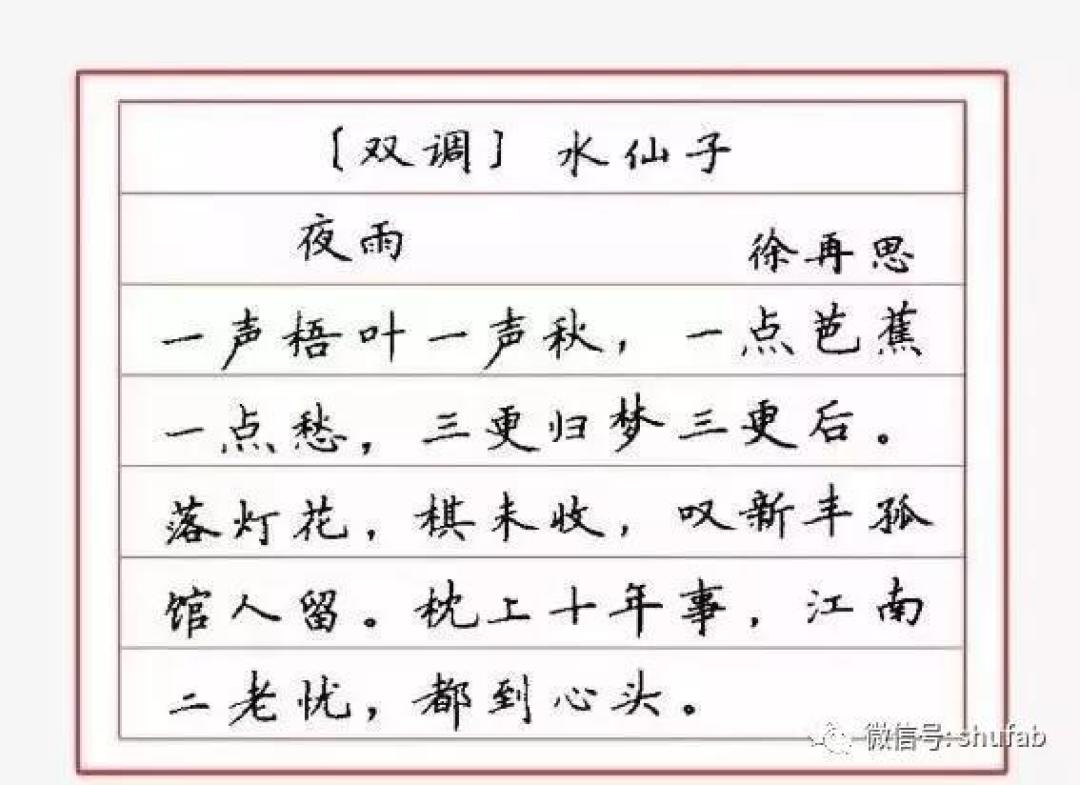 〔双调〕 水仙子
夜雨 徐再思
一声梧叶一声秋，一点芭蕉
一点愁，三更归梦三更后。
落灯花，棋未收，叹新丰孤
馆人留。枕上十年事，江南
二老忧，都到心头。
微信号: shufab